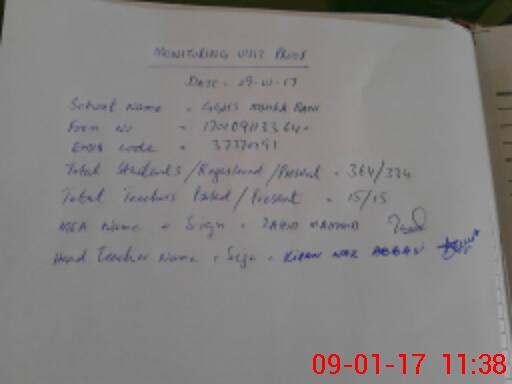 MONITORING VISIT PROOF
DATE - 09-01-17
School Name = GGHS
Form No =
EMIS code =
Total Students/Registered/Present = 364/334
Total Teachers Posted/Present = 15/15
MEA Name + Sign = ZAHID MAHMOOD
Head Teacher Name + Sign = KIRAN NAZ ABBASI
09-01-17 11:38